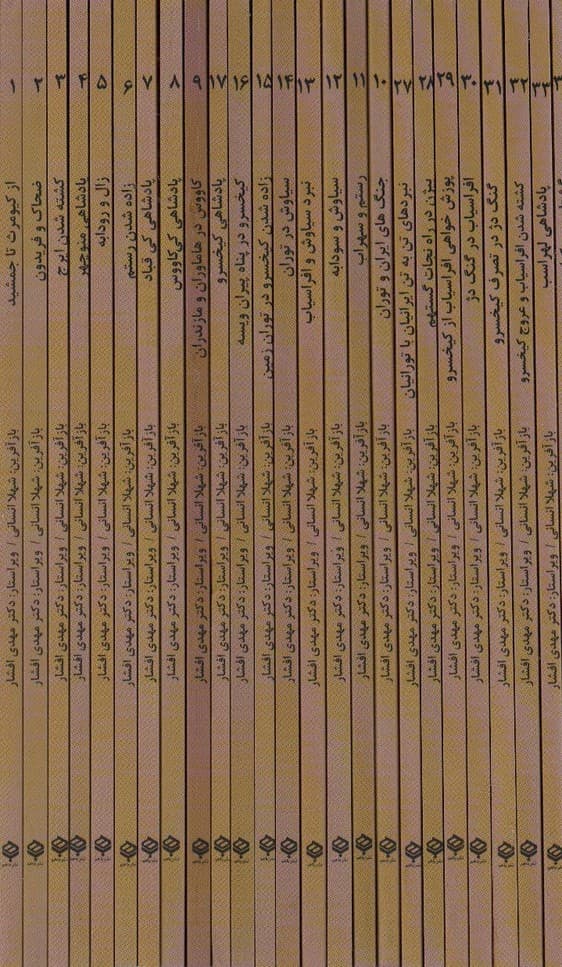 ۱ از کیومرث تا جمشید بازآفرین: شهلا انسانی / ویراستار: دکتر مهدی افشار
۲ ضحاک و فریدون بازآفرین: شهلا انسانی / ویراستار: دکتر مهدی افشار
۳ کشته شدن ایرج بازآفرین: شهلا انسانی / ویراستار: دکتر مهدی افشار
۴ پادشاهی منوچهر بازآفرین: شهلا انسانی / ویراستار: دکتر مهدی افشار
۵ زال و رودابه بازآفرین: شهلا انسانی / ویراستار: دکتر مهدی افشار
۶ زاده شدن رستم بازآفرین: شهلا انسانی / ویراستار: دکتر مهدی افشار
۷ پادشاهی کی قباد بازآفرین: شهلا انسانی / ویراستار: دکتر مهدی افشار
۸ پادشاهی کی‌کاووس بازآفرین: شهلا انسانی / ویراستار: دکتر مهدی افشار
۹ کاووس در هاماوران و مازندران بازآفرین: شهلا انسانی / ویراستار: دکتر مهدی افشار
۱۷ پادشاهی کیخسرو بازآفرین: شهلا انسانی / ویراستار: دکتر مهدی افشار
۱۶ کیخسرو در پناه پیران ویسه بازآفرین: شهلا انسانی / ویراستار: دکتر مهدی افشار
۱۵ زاده شدن کیخسرو در توران زمین بازآفرین: شهلا انسانی / ویراستار: دکتر مهدی افشار
۱۴ سیاوش در توران بازآفرین: شهلا انسانی / ویراستار: دکتر مهدی افشار
۱۳ نبرد سیاوش و افراسیاب بازآفرین: شهلا انسانی / ویراستار: دکتر مهدی افشار
۱۲ سیاوش و سودابه بازآفرین: شهلا انسانی / ویراستار: دکتر مهدی افشار
۱۱ رستم و سهراب بازآفرین: شهلا انسانی / ویراستار: دکتر مهدی افشار
۱۰ جنگ های ایران و توران بازآفرین: شهلا انسانی / ویراستار: دکتر مهدی افشار
۲۷ نبردهای تن به تن ایرانیان با تورانیان بازآفرین: شهلا انسانی / ویراستار: دکتر مهدی افشار
۲۸ بیژن در راه نجات گستهم بازآفرین: شهلا انسانی / ویراستار: دکتر مهدی افشار
۲۹ پوزش خواهی افراسیاب از کیخسرو بازآفرین: شهلا انسانی / ویراستار: دکتر مهدی افشار
۳۰ افراسیاب در گنگ دژ بازآفرین: شهلا انسانی / ویراستار: دکتر مهدی افشار
۳۱ گنگ دژ در تصرف کیخسرو بازآفرین: شهلا انسانی / ویراستار: دکتر مهدی افشار
۳۲ کشته شدن افراسیاب و عروج کیخسرو بازآفرین: شهلا انسانی / ویراستار: دکتر مهدی افشار
۳۳ پادشاهی لهراسب بازآفرین: شهلا انسانی / ویراستار: دکتر مهدی افشار